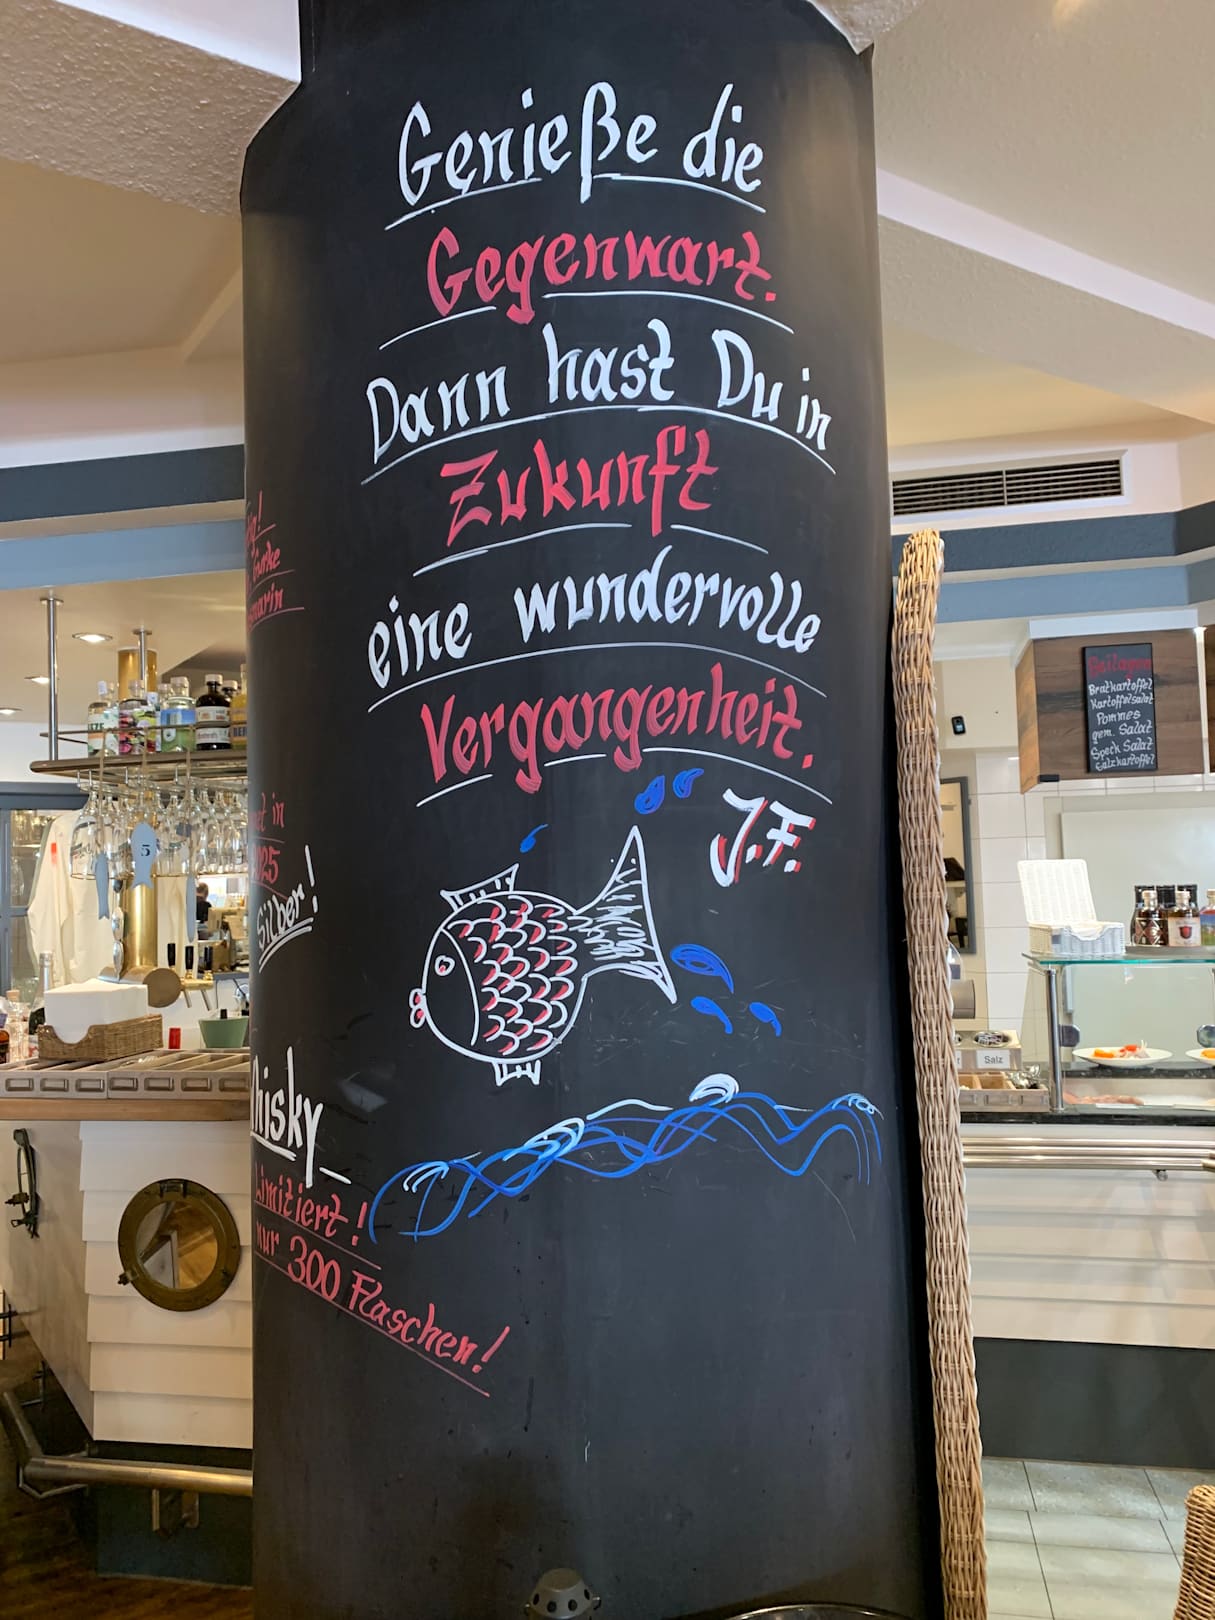 Genieße die
Gegenwart.
Dann hast Du in
Zukunft
eine wundervolle
Vergangenheit.
J.F.
Gurke
in
2025
Silber!
Whisky
Limitiert!
nur 300 Flaschen!
5
Beilagen
Bratkartoffel
Kartoffelsalat
Pommes
gem. Salat
Speck Salat
Salzkartoffel
Salz